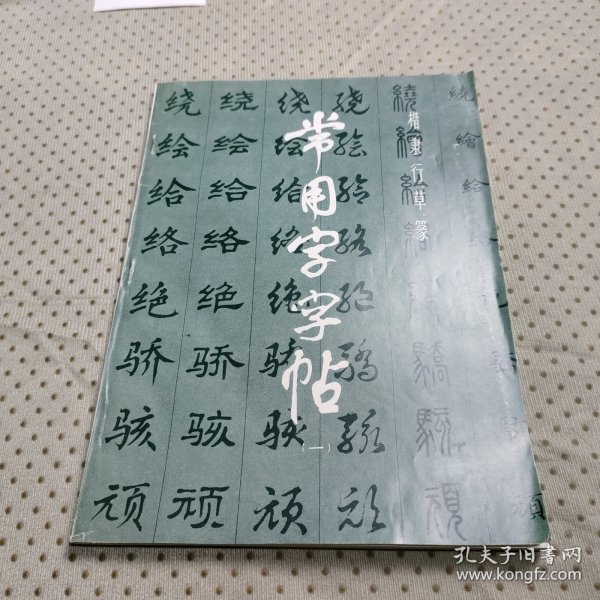 常用字字帖
(一)
楷隶行草篆
绕 绕 绕 绕 繞 绕
绘 绘 绘 绘 繪 繪
给 给 给 给 給 给
络 络 络 络
绝 绝 绝 绝
骄 骄 骄 骄 驕
骇 骇 骇 骇 駭
顽 顽 顽 顽 頑 頑
孔夫子旧书网
www.kongfz.com